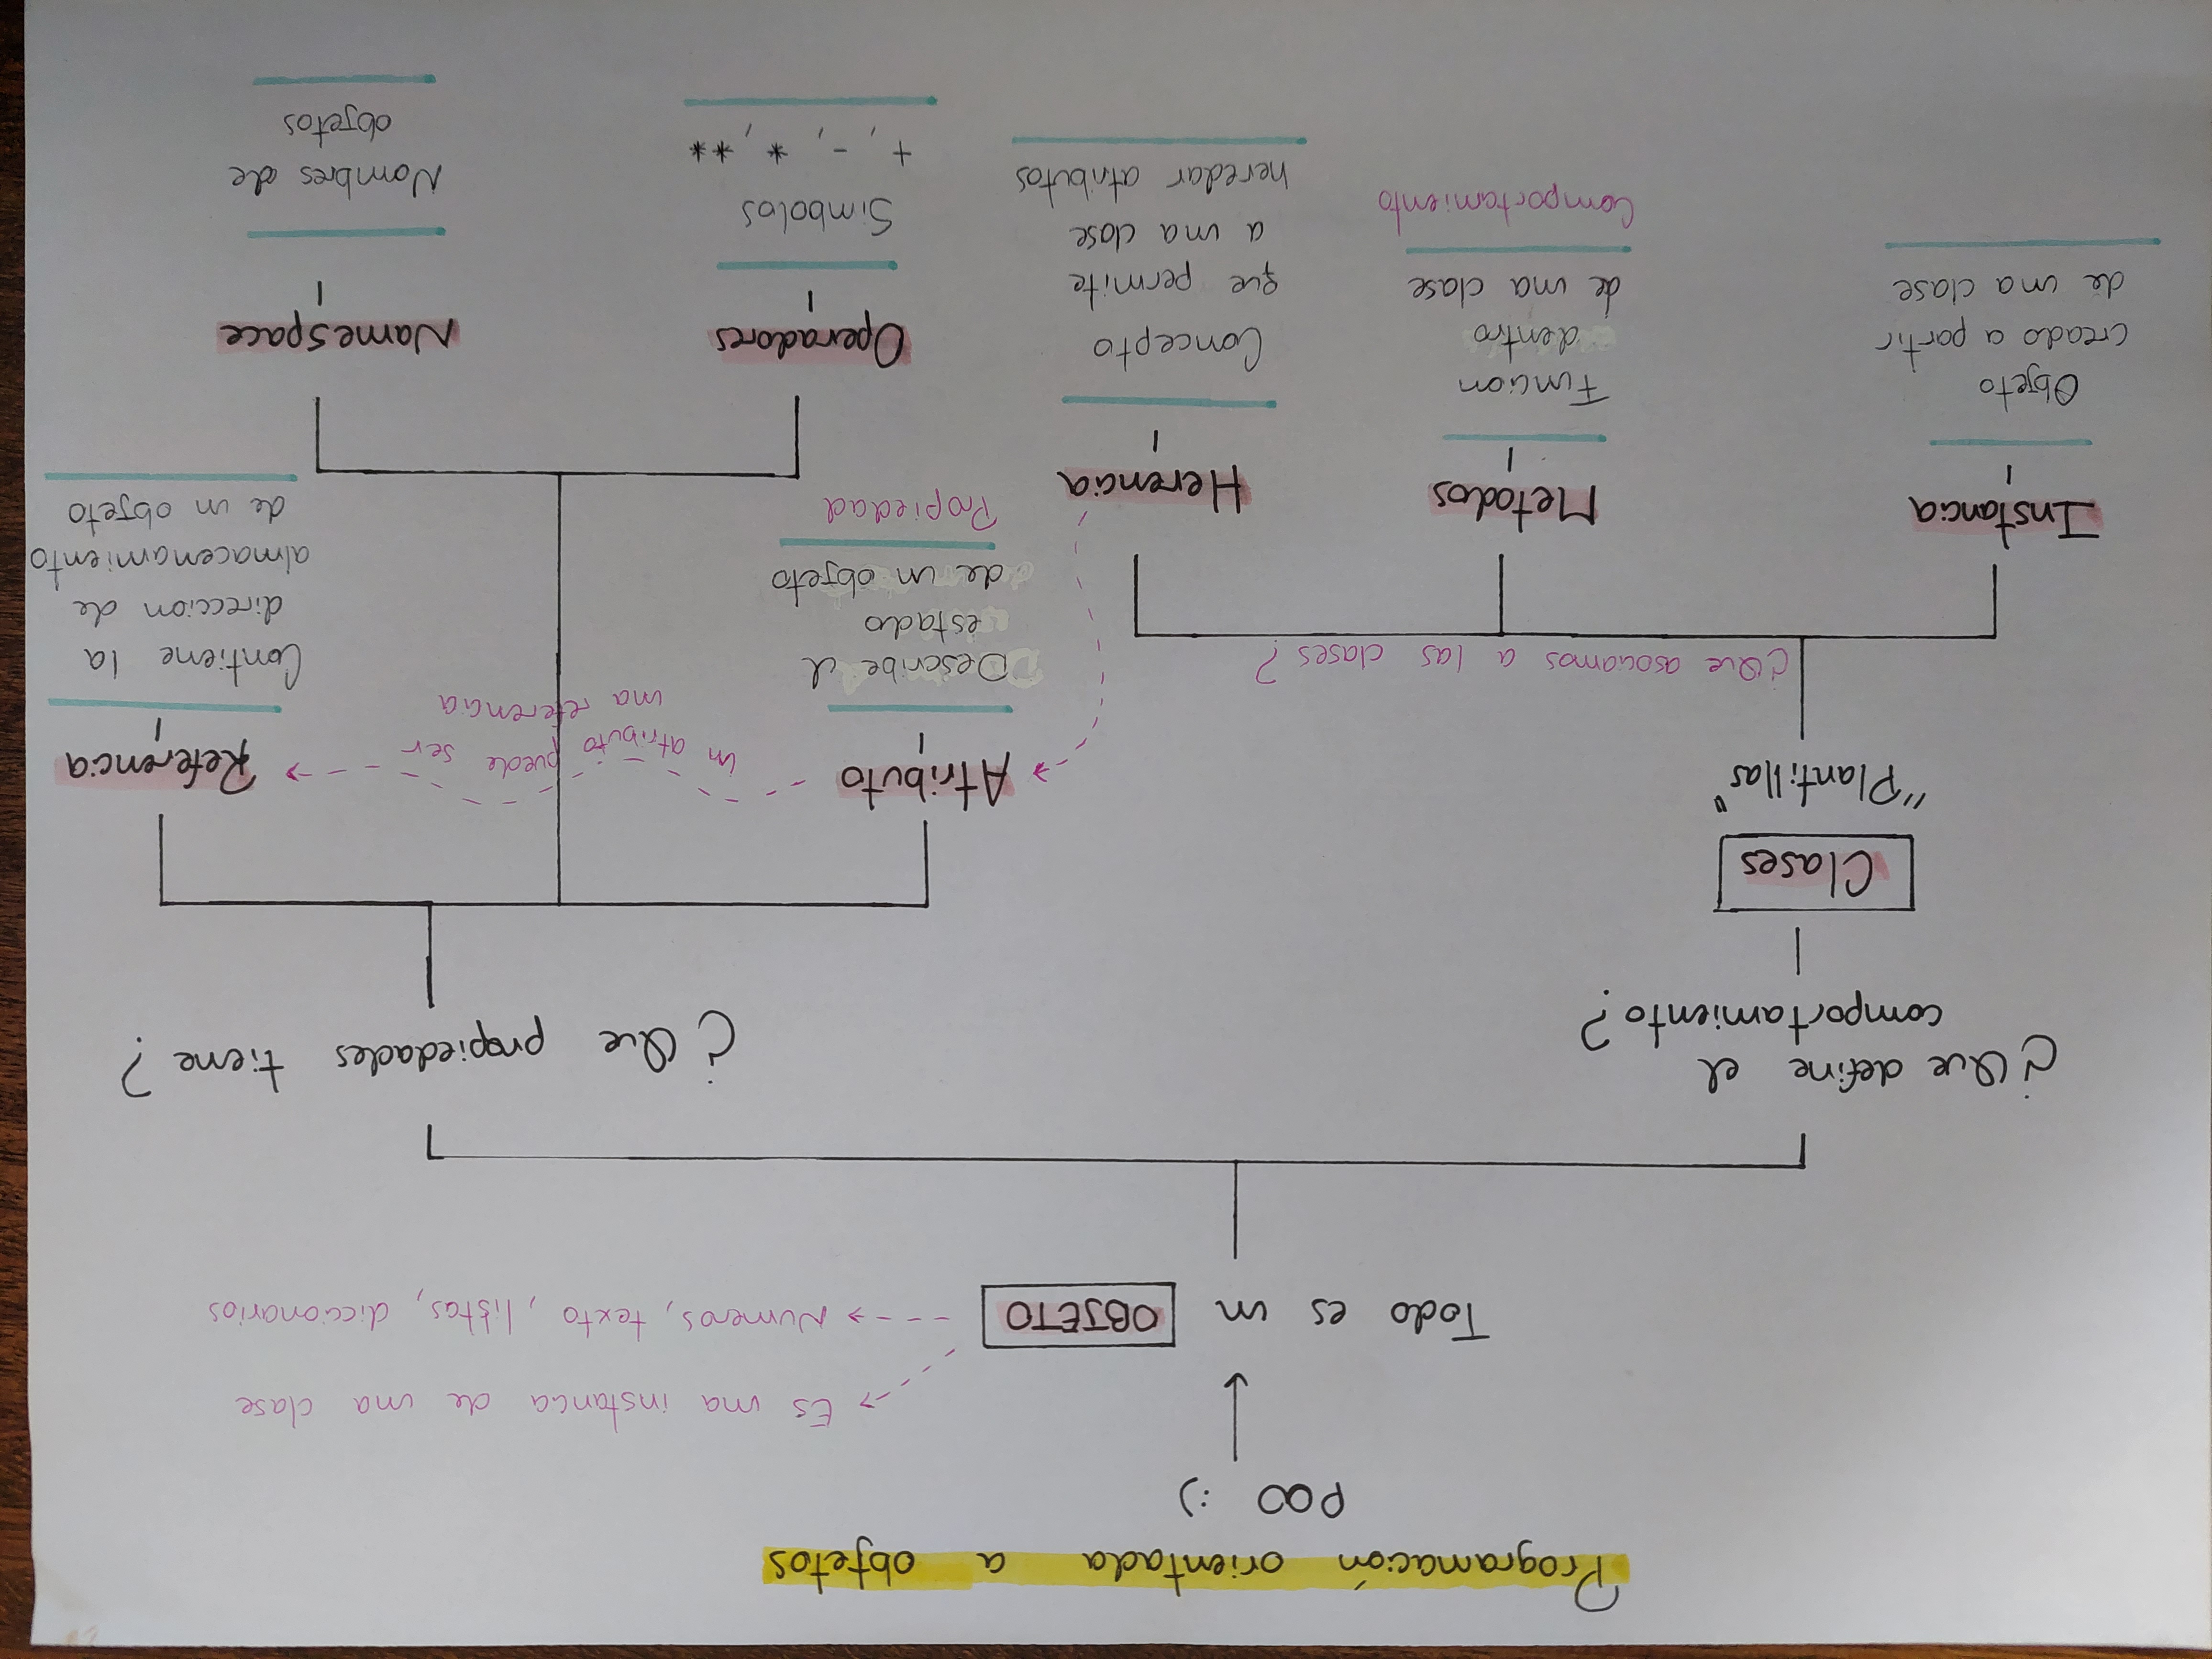 Programación orientada a objetos
POO :)
Es una instancia de una clase
Todo es un OBJETO
Numeros, texto, listas, diccionarios
¿Que define el
comportamiento?
Clases
"Plantillas"
¿Que asociamos a las clases?
Instancia
Objeto
creado a partir
de una clase
Metodos
Funcion
dentro
de una clase
Comportamiento
Herencia
Concepto
que permite
a una clase
heredar atributos
¿Que propiedades tiene?
Atributo
Describe el
estado
de un objeto
Propiedad
un atributo puede ser
una referencia
Referencia
Contiene la
direccion de
almacenamiento
de un objeto
Operadores
Simbolos
+, -, *, **
Namespace
Nombres de
objetos